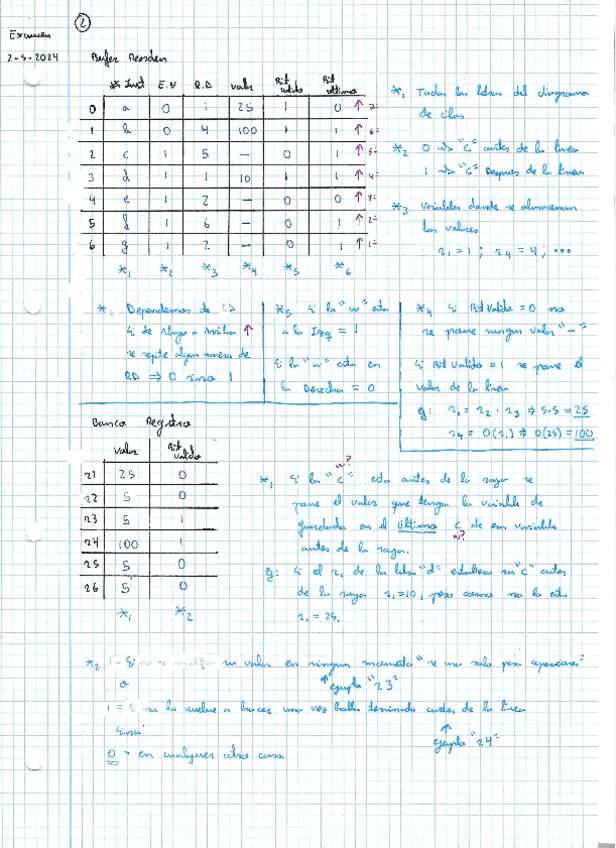 Examen
2
2-5-2024
Bufer Reorden
Nº Inst E.V R.D Valor Bit valido Bit ultimo
0 a 0 1 25 1 0 ↑ 7º
1 b 0 4 100 1 1 ↑ 6º
2 c 1 5 — 0 1 ↑ 5º
3 d 1 1 10 1 1 ↑ 4º
4 e 1 2 — 0 0 ↑ 3º
5 f 1 6 — 0 1 ↑ 2º
6 g 1 2 — 0 1 ↑ 1º
*1 *2 *3 *4 *5 *6
*1 Todas las letras del diagrama
de clas
*2 0 → "C" antes de la linea
1 → "C" Despues de la linea
*3 Variables donde se almacenan
los valores
r1 = 1 ; r4 = 4 ; ...
*6 Dependemos de RD
Si de Abajo a Arriba ↑
se repite algun numero de
RD ⇒ 0 sino 1
*5 Si la "w" esta
a la Izq = 1
Si la "w" esta en
la Derecha = 0
*4 Si Bit Valido = 0 no
se pone ningun valor "—"
Si Bit Valido = 1 se pone el
valor de la linea
g: r1 = r2 · r3 ⇒ 5·5 = 25
r4 = 0(r1) ⇒ 0(25) = 100
Banco Registro
Valor Bit valido
r1 25 0
r2 5 0
r3 5 1
r4 100 1
r5 5 0
r6 5 0
*1 *2
w?
*1 Si la "C" esta antes de la raya se
pone el valor que tenga la variable de
guardada en el ultimo C de esa variable
w?
antes de la raya.
g: Si el r1 de la letra "d" estubiera su "C" antes
de la raya r1 = 10, pero como no lo esta
r1 = 25.
*2 1 - Si no se modifica su valor en ningun momento "se usa solo para operaciones"
o ↑ ejemplo "r3"
1 = Si no lo vuelve a hacer una vez halla terminado antes de la linea
sino ↑
ejemplo "r4"
0 - en cualquier otro caso